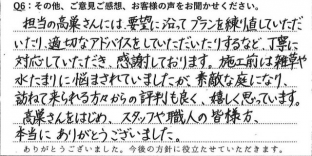 Q6：その他、ご意見ご感想、お客様の声をお聞かせください。
担当の高巣さんには、要望に沿ってプランを練り直していただ
いたり、適切なアドバイスをしていただいたりするなど、丁寧に
対応していただき、感謝しております。施工前は雑草や
水たまりに悩まされていましたが、素敵な庭になり、
訪ねて来られる方々からの評判も良く、嬉しく思っています。
高巣さんをはじめ、スタッフや職人の皆様方、
本当にありがとうございました。
ありがとうございました。今後の方針に役立たせていただきます。